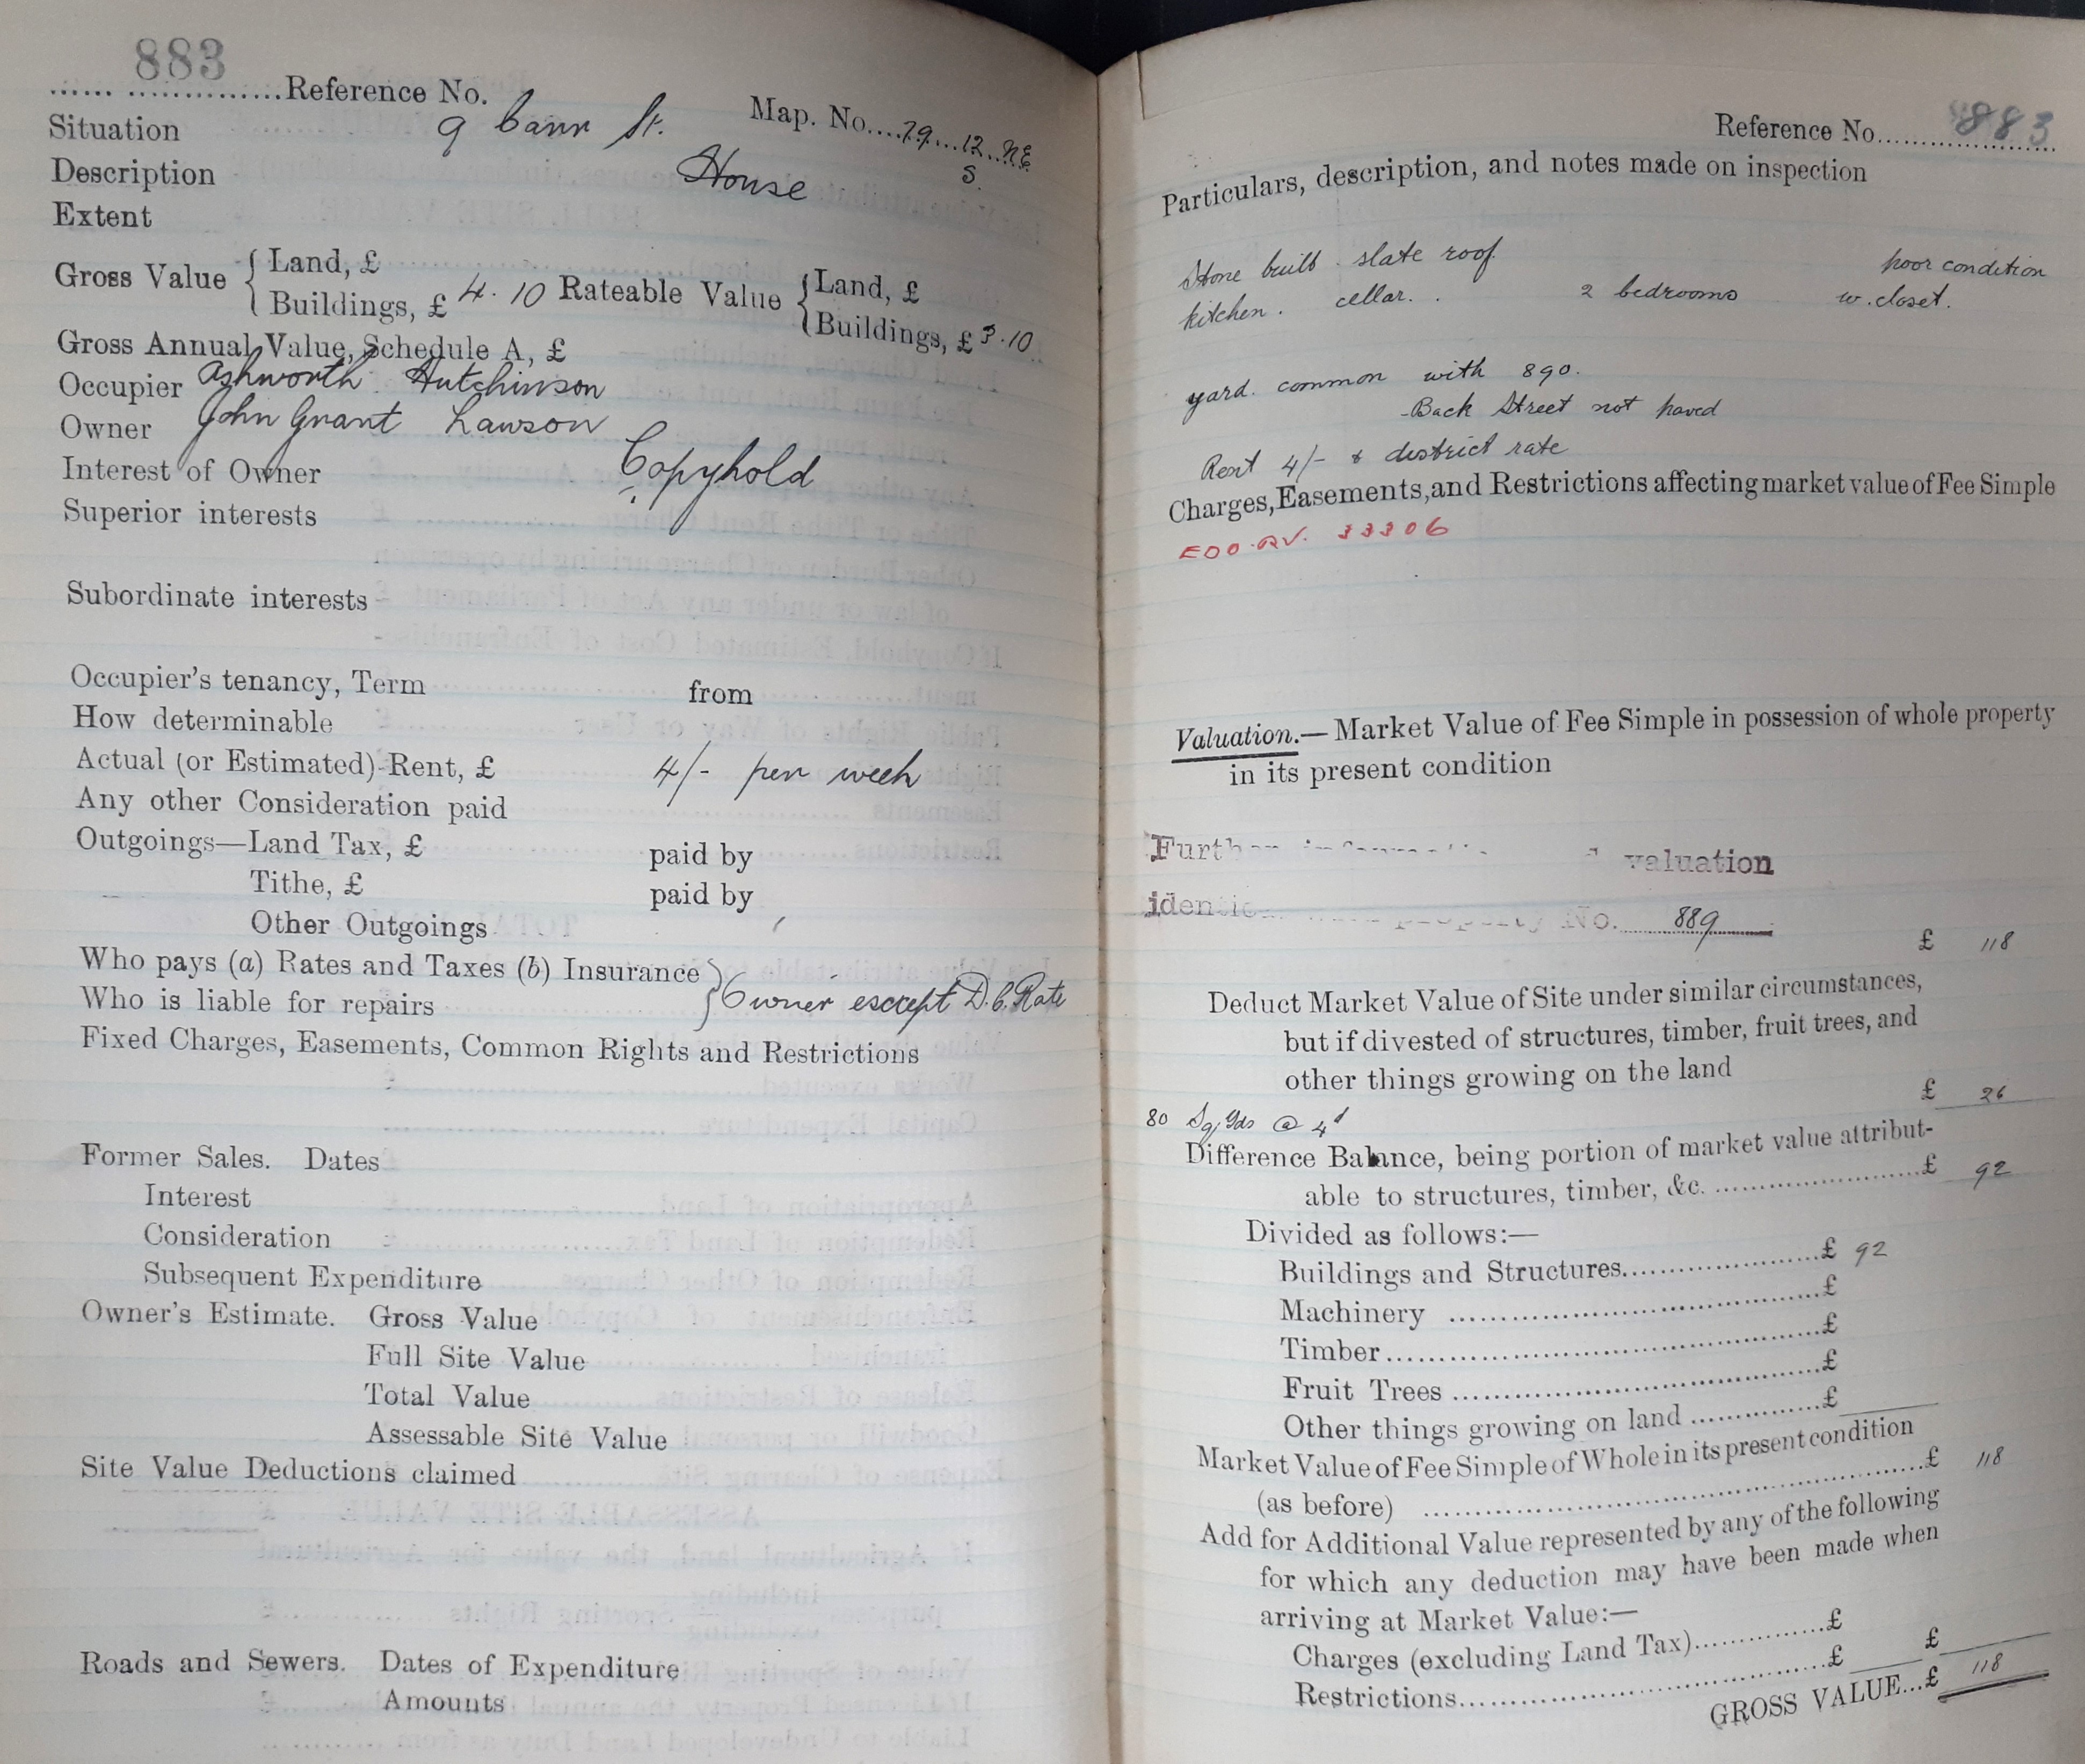 883
...... ..............Reference No.
Map. No....79...12..NE
S.
Situation 9 Carr St.
Description House
Extent
Gross Value { Land, £
Buildings, £ 4.10 Rateable Value { Land, £
Buildings, £ 3.10
Gross Annual Value, Schedule A, £
Occupier Ashworth Hutchinson
Owner John Grant Lawson
Interest of Owner Copyhold
Superior interests
Subordinate interests
Occupier's tenancy, Term from
How determinable
Actual (or Estimated) Rent, £ 4/- per week
Any other Consideration paid
Outgoings—Land Tax, £ paid by
Tithe, £ paid by
Other Outgoings
Who pays (a) Rates and Taxes (b) Insurance
Who is liable for repairs } Owner except D.C. Rate
Fixed Charges, Easements, Common Rights and Restrictions
Former Sales. Dates
Interest
Consideration
Subsequent Expenditure
Owner's Estimate. Gross Value
Full Site Value
Total Value
Assessable Site Value
Site Value Deductions claimed
Roads and Sewers. Dates of Expenditure
Amounts
Reference No. 883
Particulars, description, and notes made on inspection
Stone built. slate roof. poor condition
kitchen. cellar. 2 bedrooms w.closet.
yard common with 890.
Back Street not paved
Rent 4/- & district rate
Charges, Easements, and Restrictions affecting market value of Fee Simple
33306
Valuation.— Market Value of Fee Simple in possession of whole property
in its present condition
Further valuation
property No. 889
£ 118
Deduct Market Value of Site under similar circumstances,
but if divested of structures, timber, fruit trees, and
other things growing on the land
£ 26
80 Sq Yds @ 4d
Difference Balance, being portion of market value attribut-
able to structures, timber, &c. £ 92
Divided as follows:—
Buildings and Structures £ 92
Machinery £
Timber £
Fruit Trees £
Other things growing on land £
Market Value of Fee Simple of Whole in its present condition
(as before) £ 118
Add for Additional Value represented by any of the following
for which any deduction may have been made when
arriving at Market Value:—
Charges (excluding Land Tax) £
Restrictions £ £
GROSS VALUE...£ 118